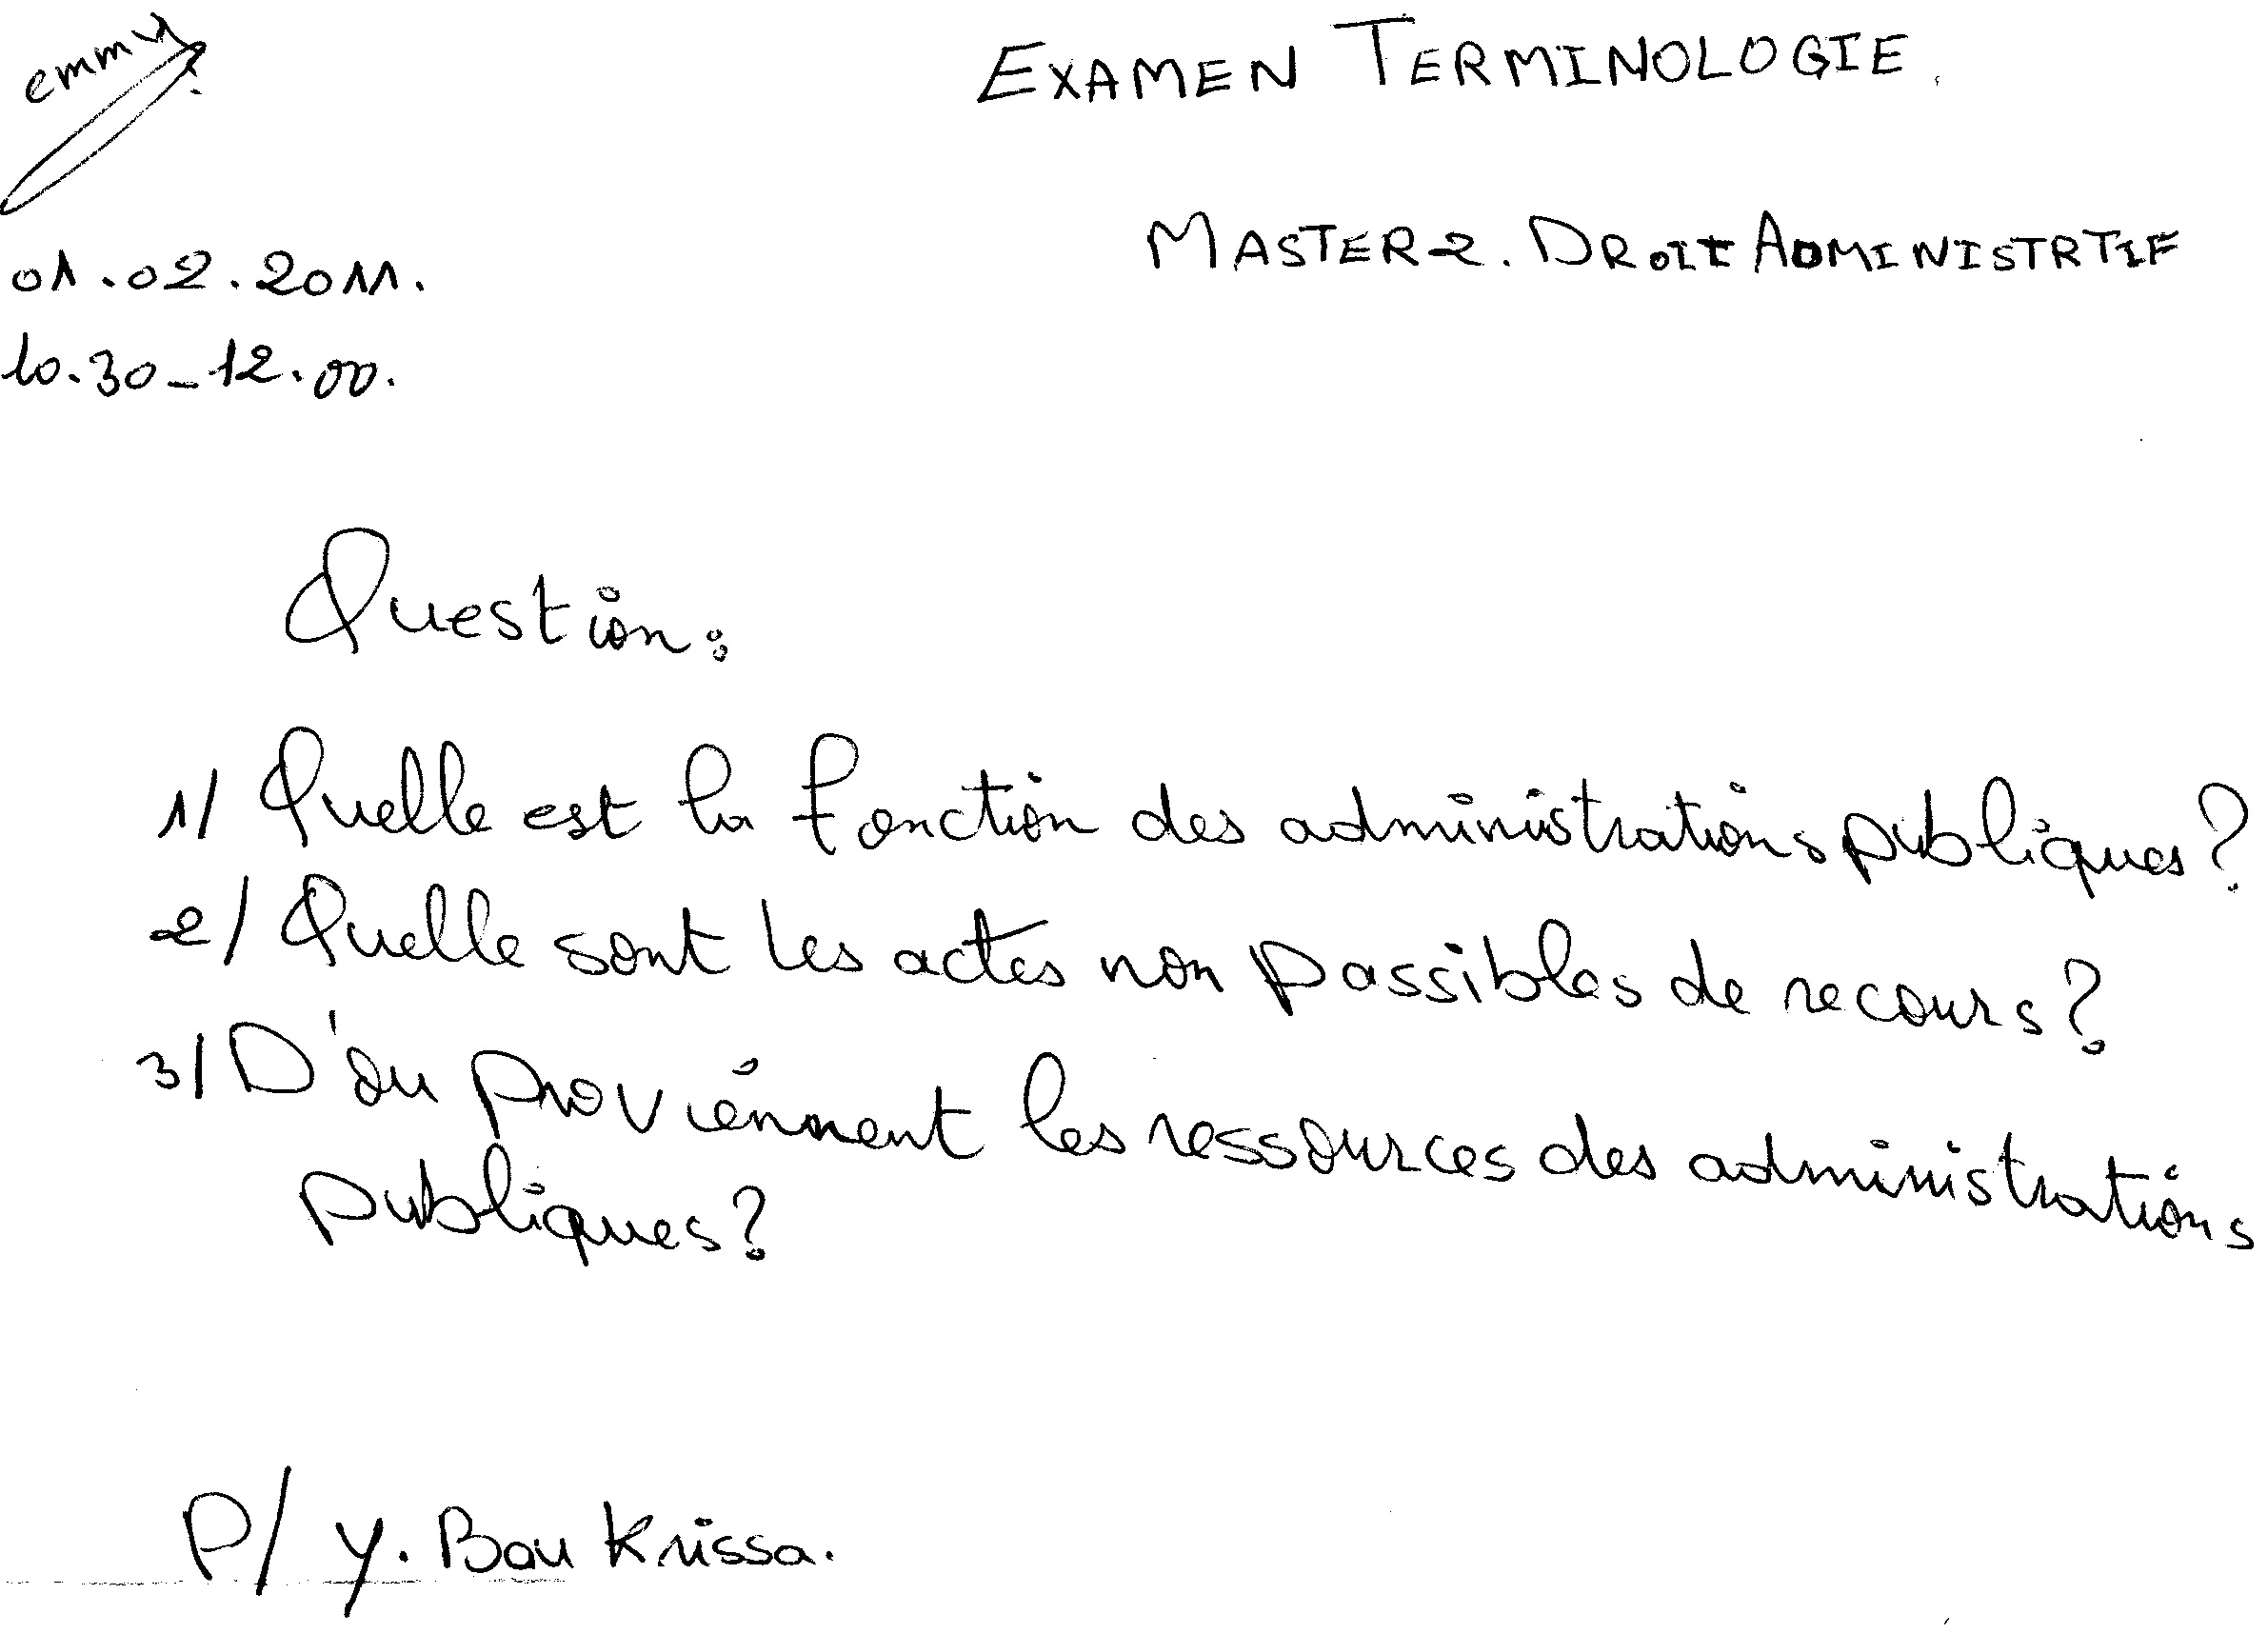 EXAMEN TERMINOLOGIE.
MASTER 2. DROIT ADMINISTRTIF
01.02.2011.
10.30_12.00.
Question:
1/ Quelle est la fonction des administrations publiques?
2/ Quelle sont les actes non passibles de recours?
3/ D'ou proviennent les ressources des administrations
publiques?
P/ Y. Bou Krissa.